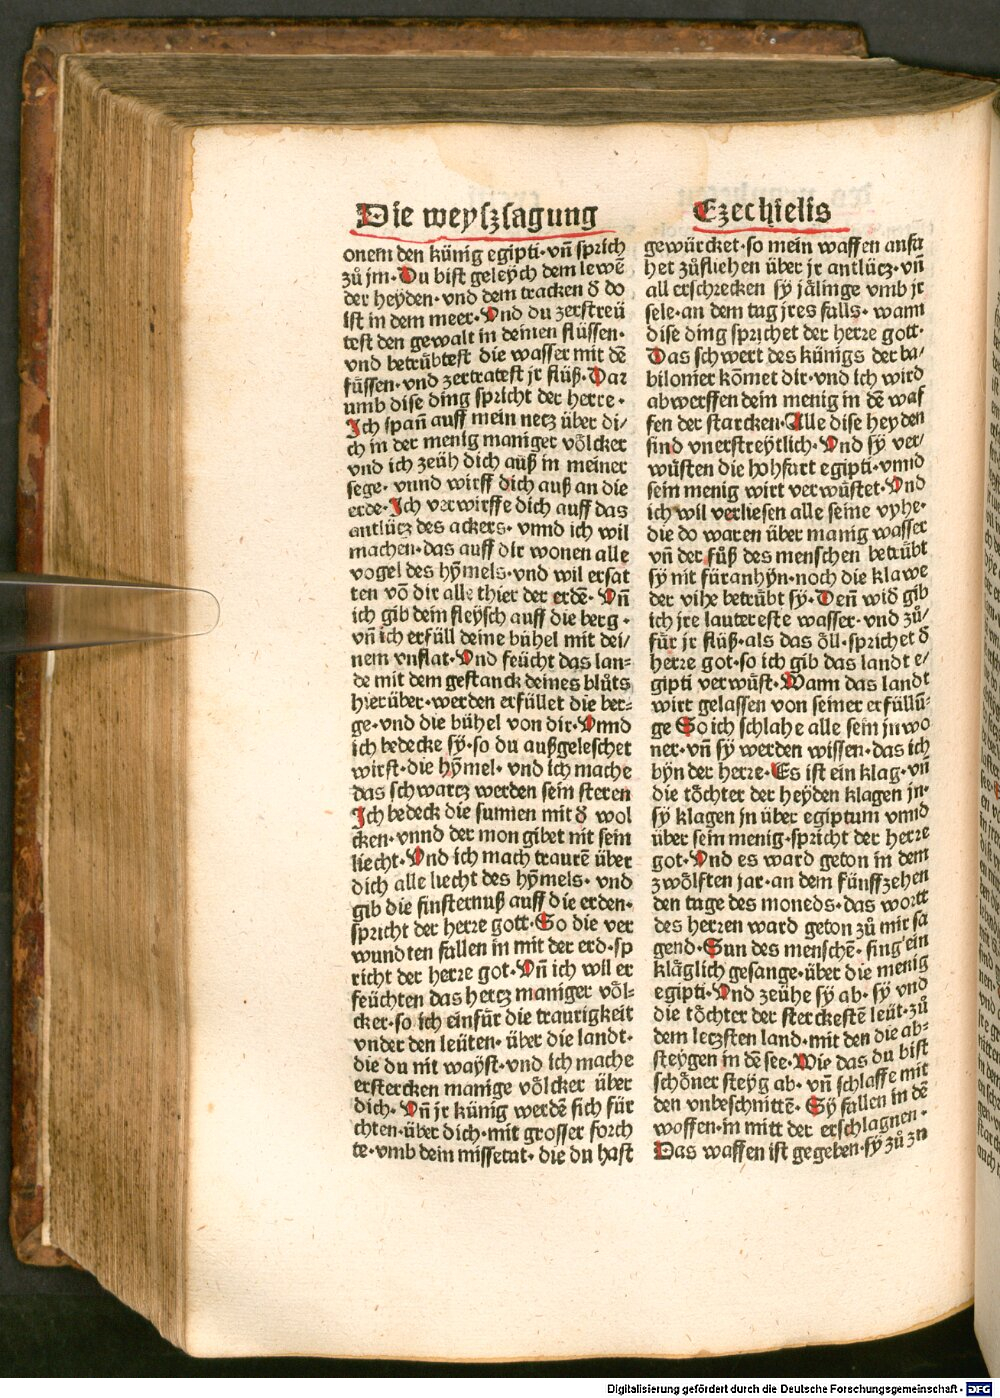 Die weyſzſagung Ezechielis
onem den künig egipti·vñ ſprich
zů jm·Du biſt geleych dem lewẽ
der heyden·vnd dem tracken ď do
iſt in dem meer·Vnd du zerſtreü
teſt den gewalt in deinen flüſſen·
vnd betrůbteſt die waſſer mit dẽ
fůſſen·vnd zertrateſt jr flüß·Dar
umb diſe ding ſpricht der herre·
Ich ſpañ auff mein netz über di/
ch in der menig maniger võlcker
vnd ich zeüh dich auß in meiner
ſege·vnnd wirff dich auß an die
erde·Ich verwirffe dich auff das
antlücz des ackers·vnnd ich wil
machen·das auff dir wonen alle
vogel des hỹmels·vnd wil erſat
ten võ dir alle thier der erdẽ·Vñ
ich gib dein fleyſch auff die berg·
vñ ich erfüll deine bühel mit dei/
nem vnflat·Vnd feücht das lan=
de mit dem geſtanck deines blůts
hierüber·werden erfüllet die ber=
ge·vnd die bühel von dir·Vnnd
ich bedecke ſy·ſo du außgeleſchet
wirſt·die hỹmel·vnd ich mache
das ſchwarcz werden ſein ſteren
Ich bedeck die ſunnen mit ď wol
cken·vnnd der mon gibet nit ſein
liecht·Vnd ich mach traurẽ über
dich alle liecht des hỹmels·vnd
gib die finſternuß auff die erden·
ſpricht der herre gott·So die ver
wundten fallen in mit der erd·ſp
richt der herre got·Vñ ich wil er
feüchten das hercz maniger võl=
cker·ſo ich einfür die traurigkeit
vnder den leüten·über die landt·
die du nit wayſt·vnd ich mache
erſtercken manige võlcker über
dich·Vñ jr künig werdẽ ſich für
chten·über dich·mit groſſer forch
te·vmb dein miſſetat·die du haſt
gewürcket·ſo mein waffen anfa
het zůfliehen über jr antlücz·vñ
all erſchrecken ſy jãlinge vmb jr
ſele·an dem tag jres falls·wann
diſe ding ſprichet der herre gott·
Das ſchwert des künigs der ba/
bilonier kõmet dir·vnd ich wird
abwerffen dein menig in dẽ waf
fen der ſtarcken·Alle diſe heyden
ſind vnerſtreytlich·Vnd ſy ver/
wůſten die hohfart egipti·vnnd
ſein menig wirt verwůſtet·Vnd
ich wil verlieſen alle ſeine vyhe·
die do waren über manig waſſer
vñ der fůß des menſchen betrůbt
ſy nit füranhyn·noch die klawe
der vihe betrůbt ſy·Deñ wid gib
ich jre lautereſte waſſer·vnd zů/
für jr flüß·als das õll·ſprichet ď
herre got·ſo ich gib das landt e/
gipti verwůſt·Wann das landt
wirt gelaſſen von ſeiner erfüllũ=
ge So ich ſchlahe alle ſein jnwo
ner·vñ ſy werden wiſſen·das ich
byn der herre·Es iſt ein klag·vñ
die tõchter der heyden klagen jn·
ſy klagen jn über egiptum vnnd
über ſein menig·ſpricht der herre
got·Vnd es ward geton in dem
zwõlften jar·an dem fünffzehen
den tage des moneds·das wortt
des herren ward geton zů mir ſa
gend·Sun des menſchẽ·ſing ein
klãglich geſange·über die menig
egipti·Vnd zeühe ſy ab·ſy vnd
die tõchter der ſterckeſtẽ leüt·zů
dem leczſten land·mit den die ab=
ſteygen in dẽ ſee·Wie das du biſt
ſchõner ſteyg ab·vñ ſchlaffe mit
den vnbeſchnittẽ·Sy fallen in dẽ
woffen·in mitt der erſchlagnen·
Das waffen iſt gegeben·ſy zů zn
Digitalisierung gefördert durch die Deutsche Forschungsgemeinschaft - DFG